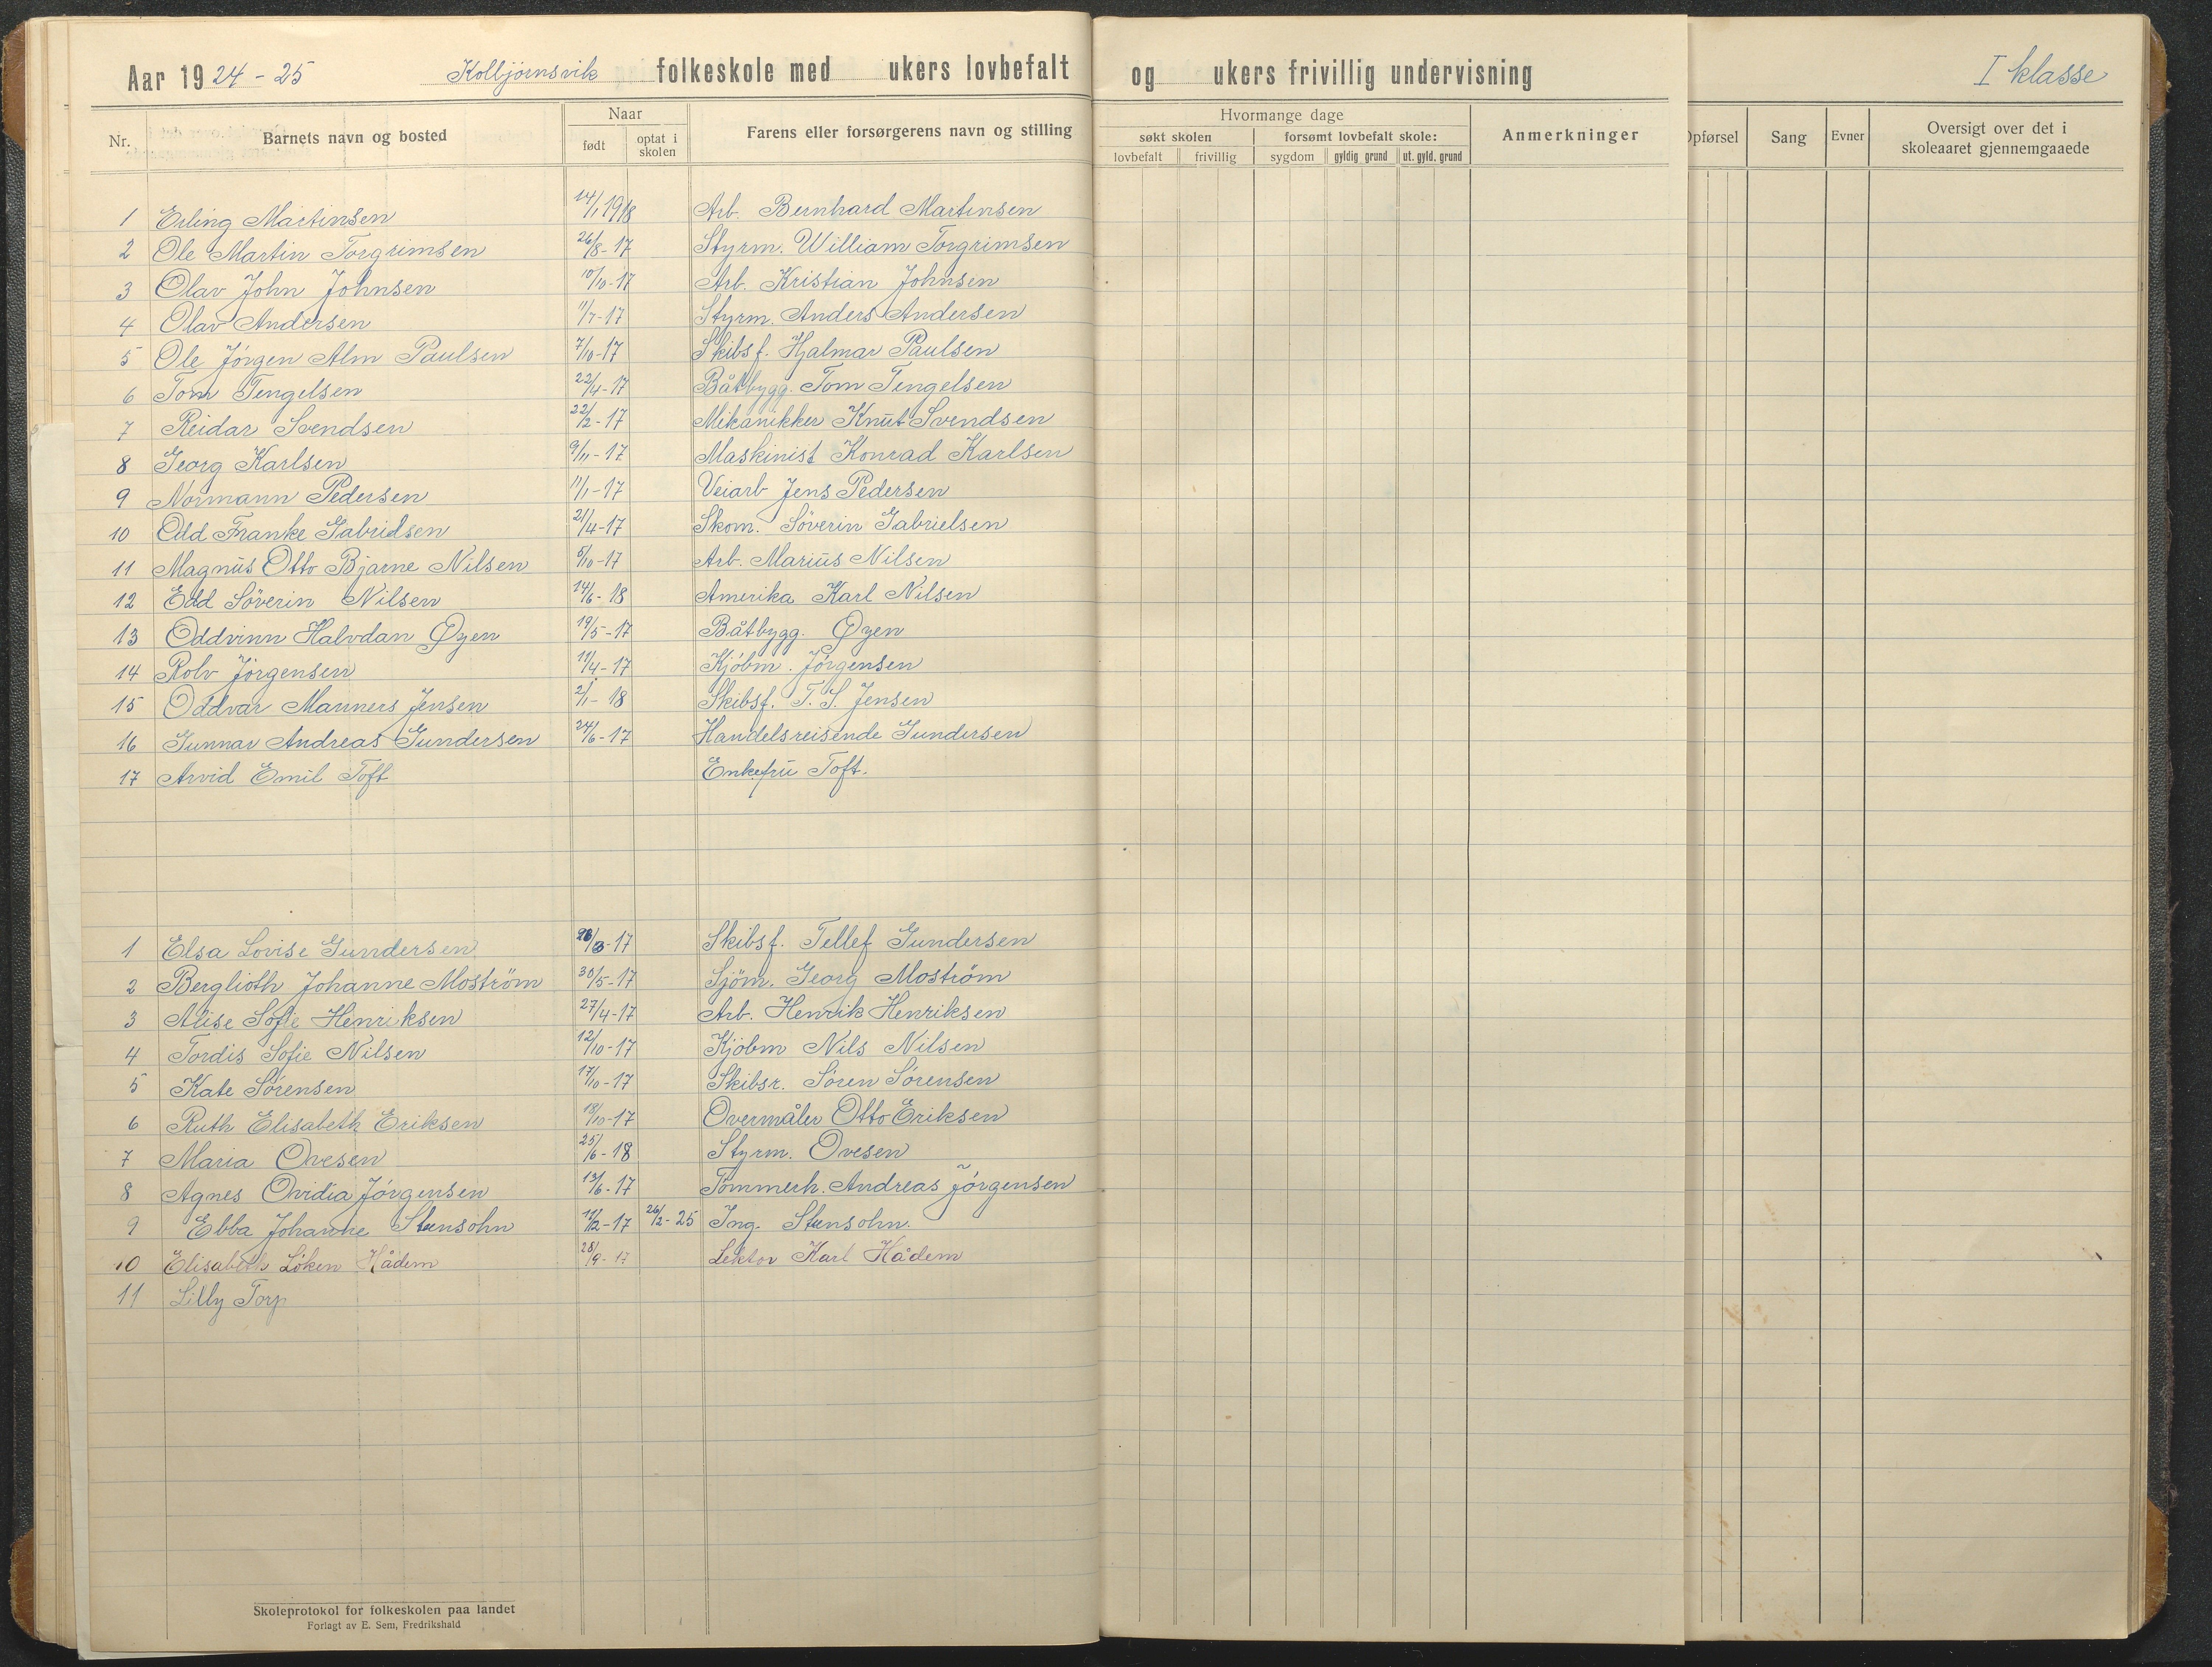 Aar 1924-25 Kolbjørnsvik folkeskole med ukers lovbefalt og ukers frivillig undervisning I klasse
Nr. Barnets navn og bosted Naar født optat i skolen Farens eller forsørgerens navn og stilling Hvormange dage søkt skolen lovbefalt frivillig forsømt lovbefalt skole: sygdom gyldig grund ut. gyld. grund Anmerkninger Opførsel Sang Evner Oversigt over det i skoleaaret gjennemgaaede
1 Erling Martinsen 14/1 1918 Arb. Bernhard Martinsen
2 Ole Martin Torgrimsen 26/8-17 Styrm. William Torgrimsen
3 Olav John Johnsen 10/10-17 Arb. Kristian Johnsen
4 Olav Andersen 11/7-17 Styrm. Anders Andersen
5 Ole Jörgen Alm Paulsen 7/10-17 Skibsf. Hjalmar Paulsen
6 Tom Tengelsen 22/4-17 Båtbygg. Tom Tengelsen
7 Reidar Svendsen 22/2-17 Mikanikker Knut Svendsen
8 Georg Karlsen 9/11-17 Maskinist Konrad Karlsen
9 Normann Pedersen 11/1-17 Veiarb Jens Pedersen
10 Odd Franke Gabrielsen 21/4-17 Skom. Söverin Gabrielsen
11 Magnus Otto Bjarne Nilsen 5/10-17 Arb. Marius Nilsen
12 Edd Söverin Nilsen 14/6-18 Amerika Karl Nilsen
13 Oddvinn Halvdan Øyen 19/5-17 Båtbygg. Øyen
14 Rolv Jörgensen 11/4-17 Kjöbm. Jörgensen
15 Oddvar Manners Jensen 2/1-18 Skibsf. T. S. Jensen
16 Gunnar Andreas Gundersen 24/6-17 Handelsreisende Gundersen
17 Arvid Emil Toft Enkefru Toft.
1 Elsa Lovise Gundersen /3-17 Skibsf. Tellef Gundersen
2 Berglioth Johanne Moström 30/5-17 Sjöm. Georg Moström
3 Alise Sofie Henriksen 27/4-17 Arb. Henrik Henriksen
4 Tordis Sofie Nilsen 12/10-17 Kjöbm Nils Nilsen
5 Kate Sörensen 17/10-17 Skibsr. Sören Sörensen
6 Ruth Elisabeth Eriksen 18/10-17 Overmåler Otto Eriksen
7 Maria Ovesen 25/6-18 Styrm. Ovesen
8 Agnes Ovidia Jörgensen 13/6-17 Tömmerh. Andreas Jörgensen
9 Ebba Johanne Stensohn 11/2-17 26/2-25 Ing. Stensohn.
10 Elisabeth Löken Hådem 28/9-17 Lektor Karl Hådem
11 Lilly Torp
Skoleprotokol for folkeskolen paa landet
Forlagt av E. Sem, Fredrikshald